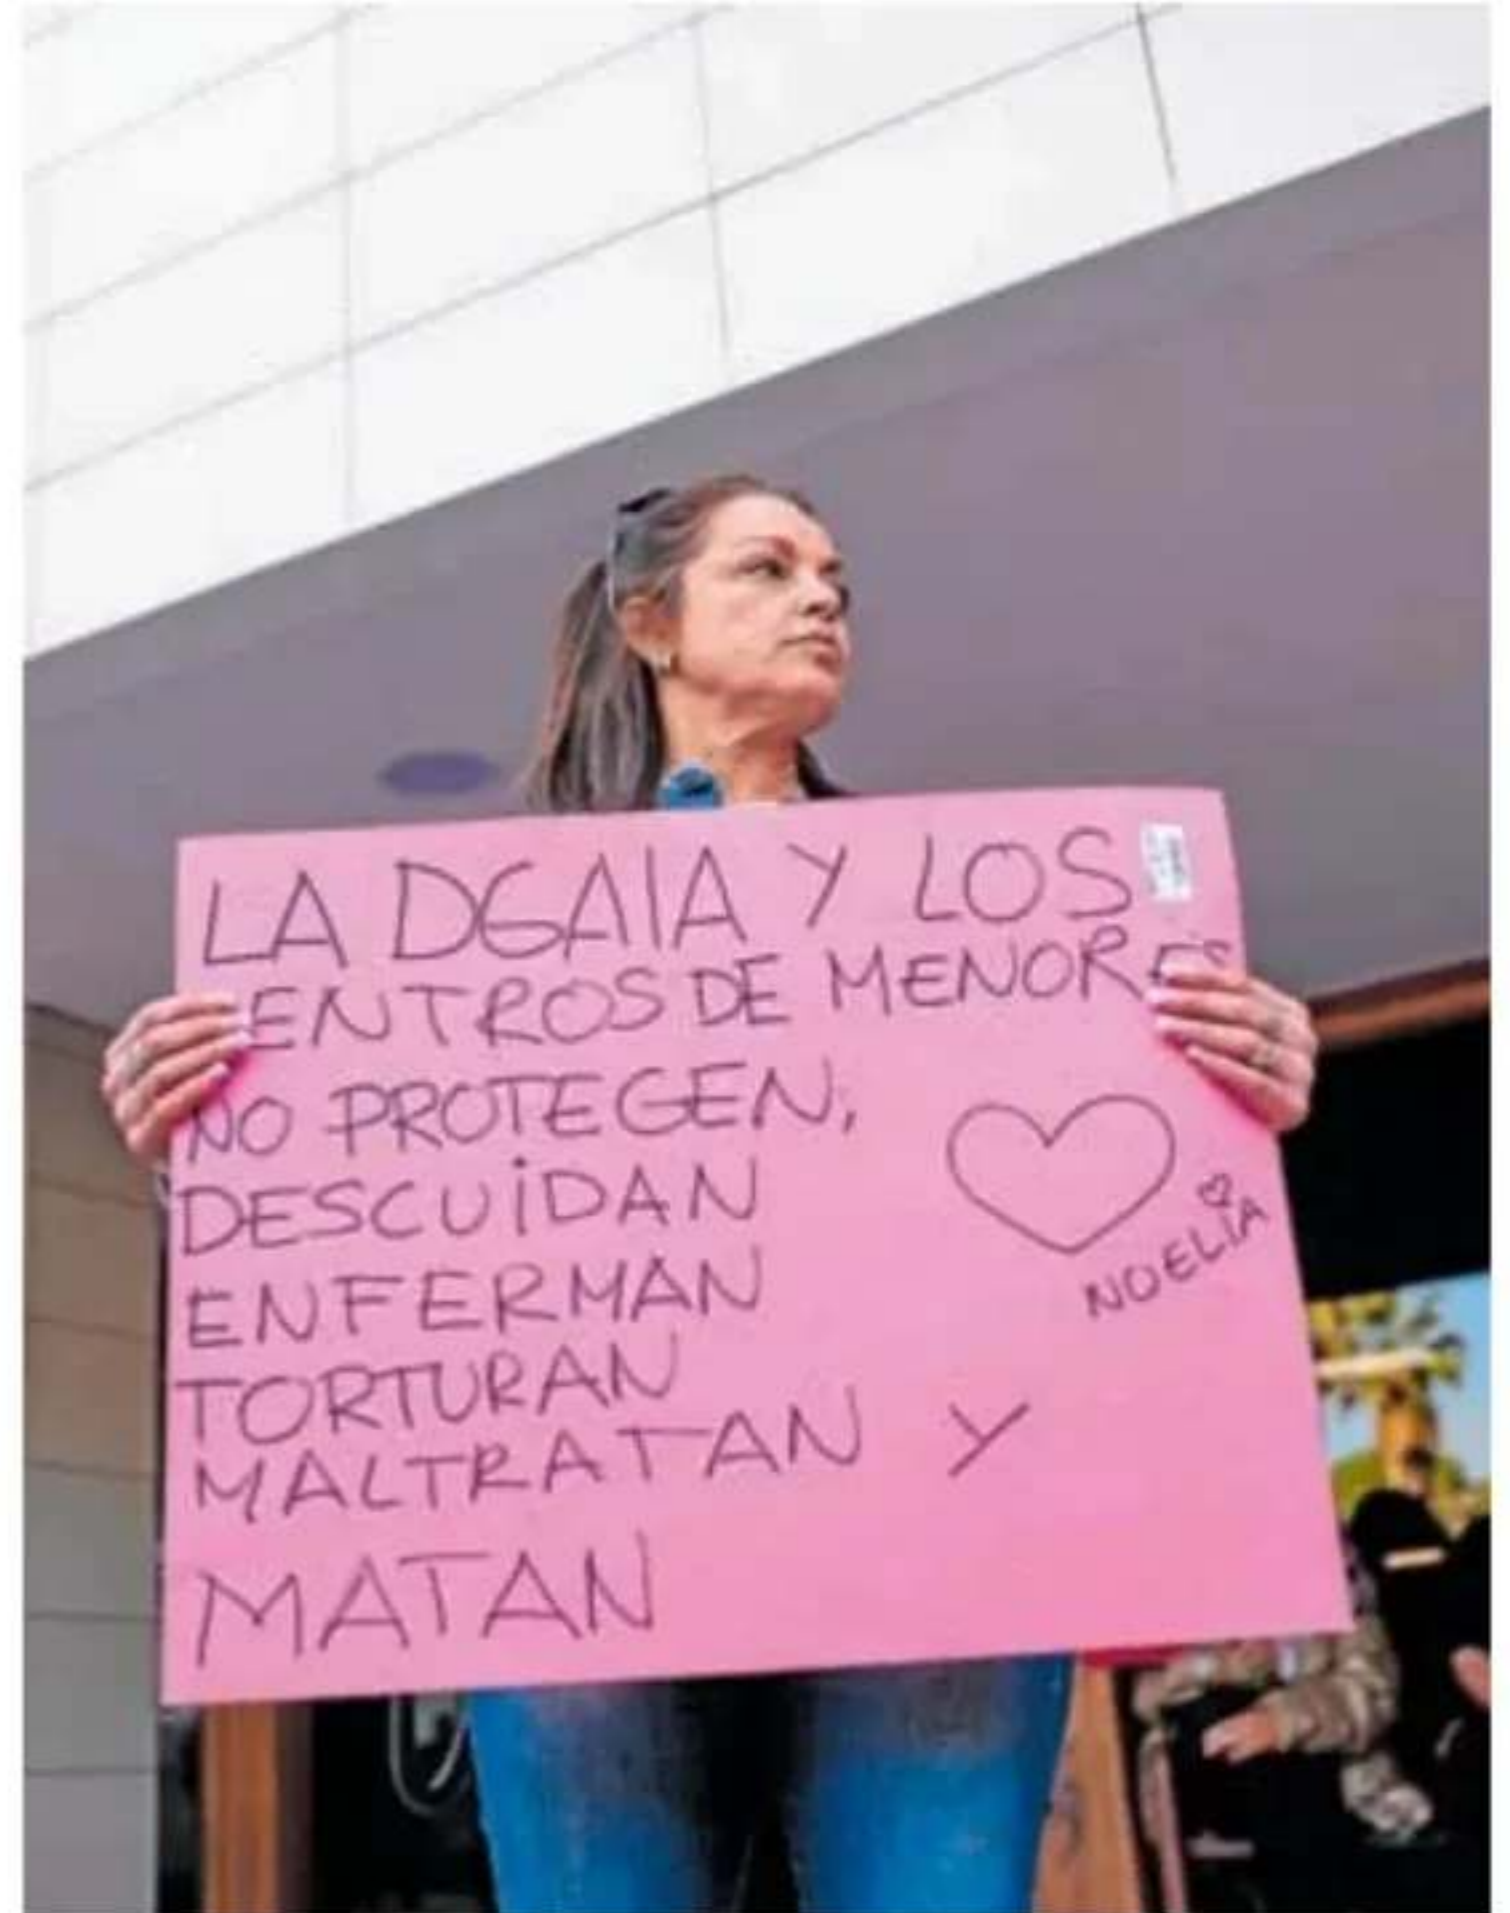 LA DGAIA Y LOS
ENTROS DE MENORES
NO PROTEGEN,
DESCUIDAN
ENFERMAN
TORTURAN
MALTRATAN Y
MATAN
NOELIA